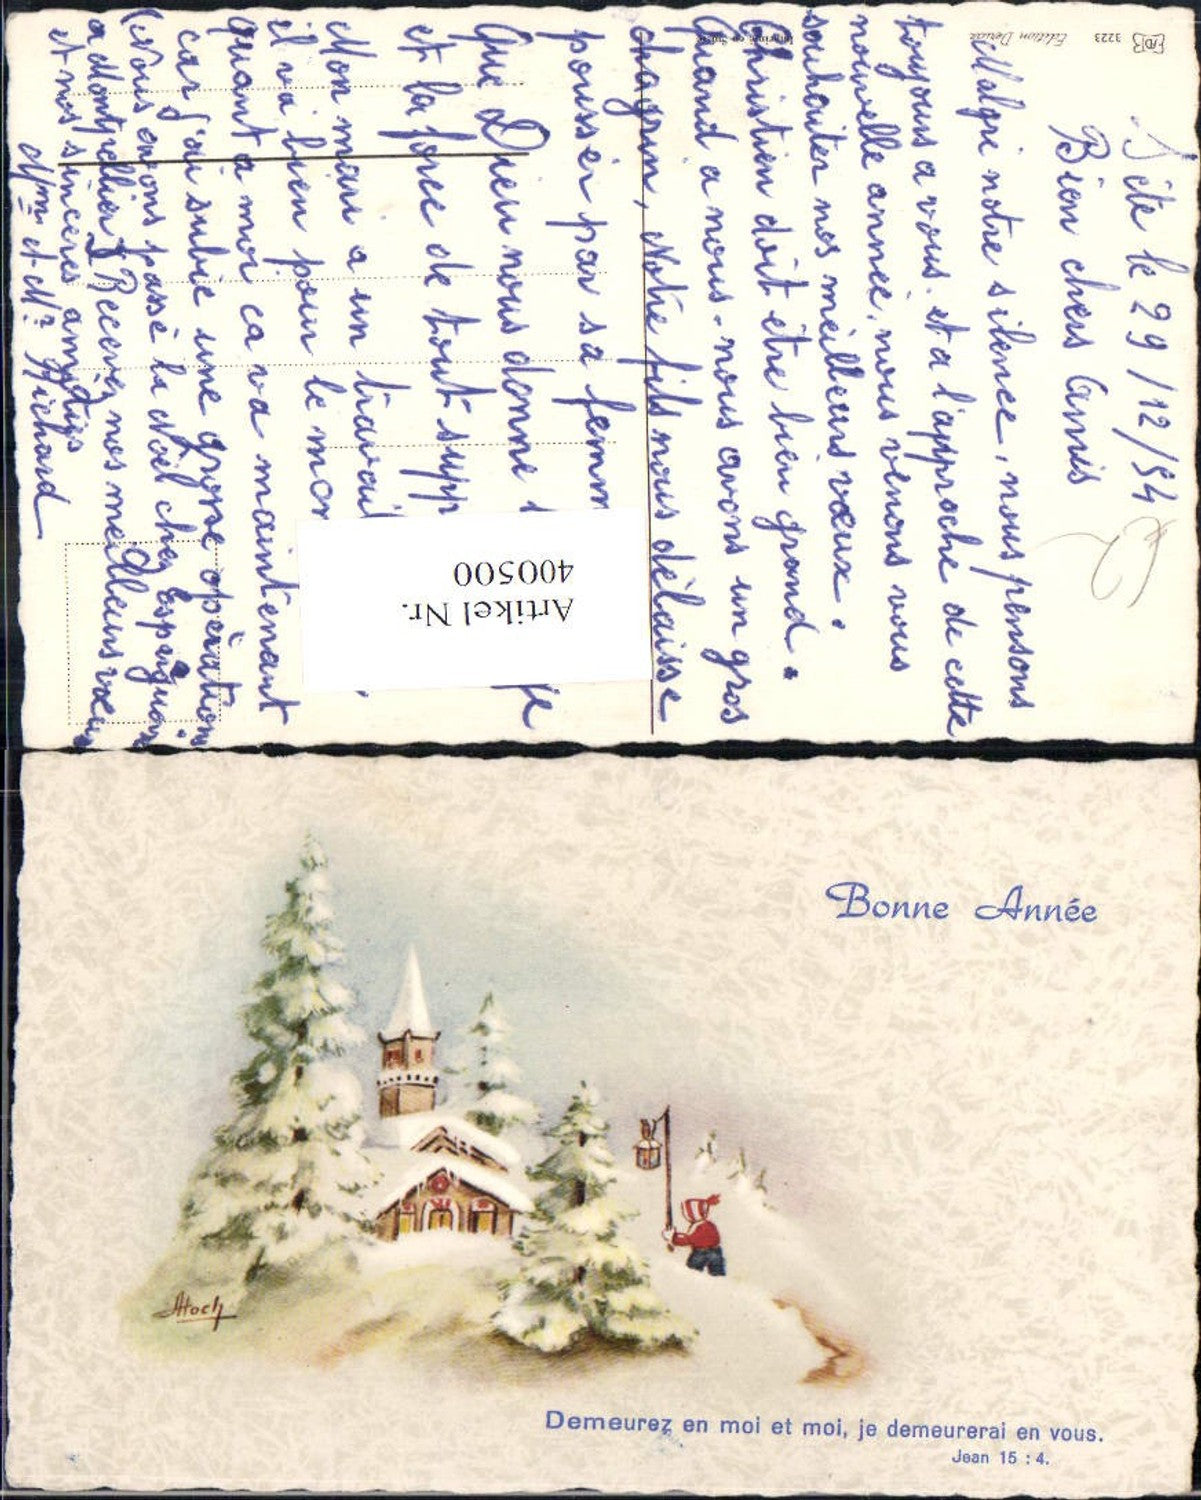 Sète le 29/12/54
Bien chers Amis
Malgré notre silence, nous pensons
toujours a vous. et a l'approche de cette
nouvelle année, nous venons vous
souhaiter nos meilleurs vœux.
Christien doit être bien grand.
Quand a nous, nous avons un gros
chagrin, Notre fils nous délaisse
pousser par sa femm
Que Dieu nous donne
et la force de tout supp
Mon mari a un travail
il va bien pour le mo
quant a moi ca va maintenant
car j'ai subie une grosse opération
(Nous avons passé la Noël chez
a Montpellier) Recevez nos meilleurs vœux
et nos sincères amitiés
Mme et Mr Richard
3223 Edition Déricée
Imprimé en Suisse
Artikel Nr.
400500
Bonne Année
Demeurez en moi et moi, je demeurerai en vous.
Jean 15 : 4.